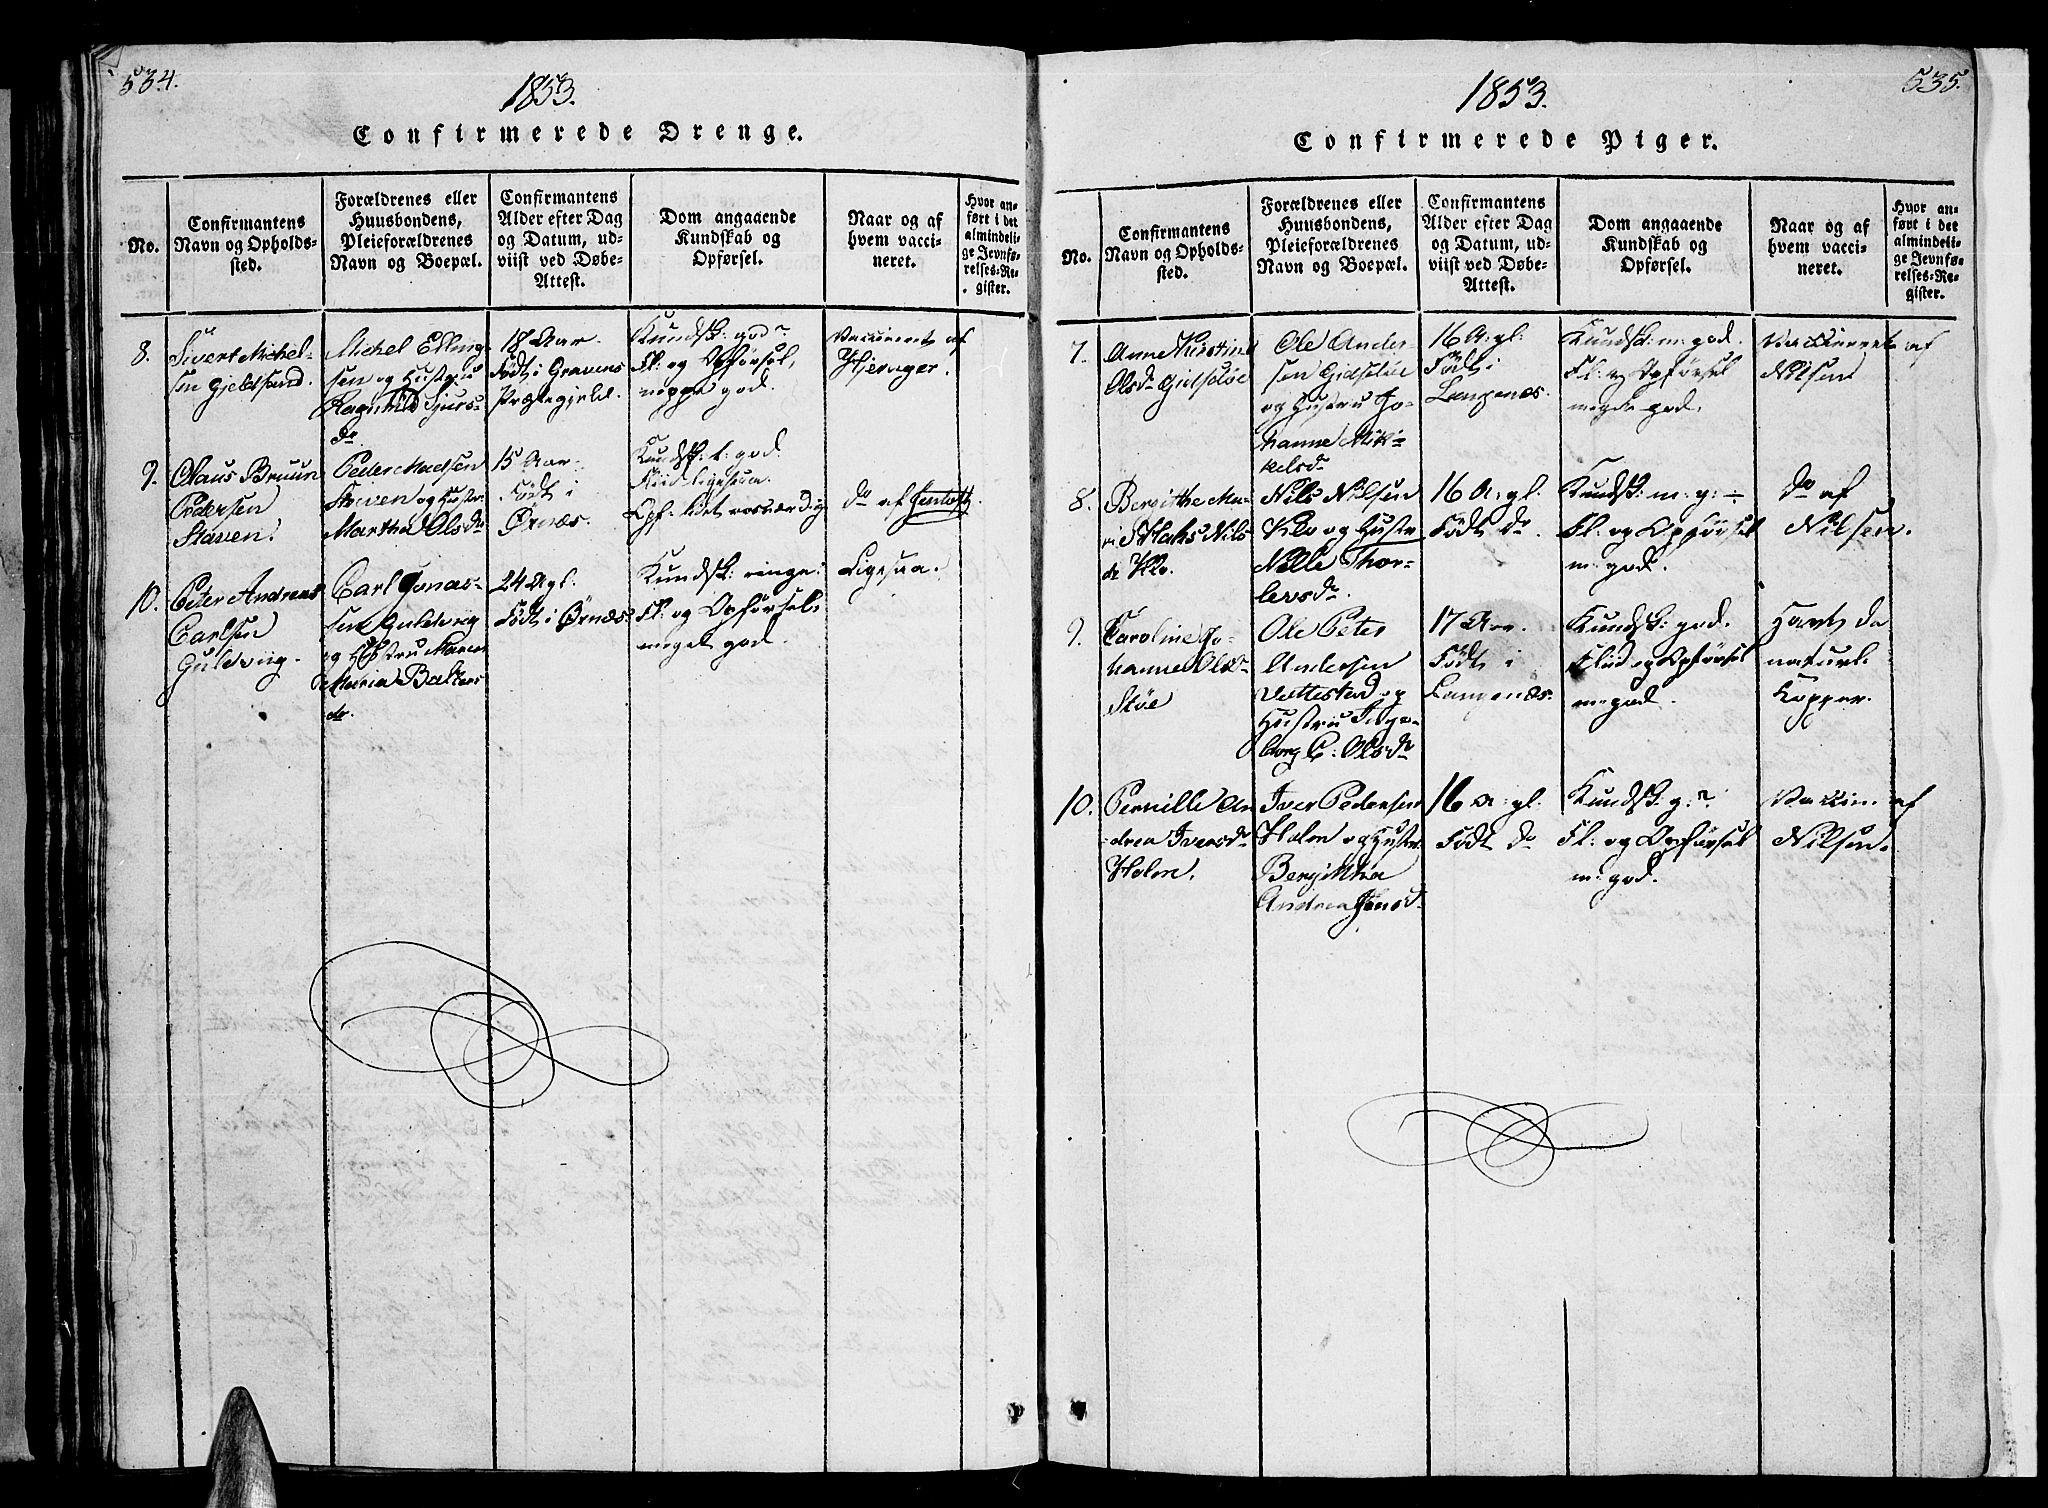 534.
1853.
Confirmerede Drenge.
No.
Confirmantens
Navn og Opholds-
sted.
Forældrenes eller
Huusbondens,
Pleieforældrenes
Navn og Boepæl.
Confirmantens
Alder efter Dag
og Datum, ud-
viist ved Døbe-
Attest.
Dom angaaende
Kundskab og
Opførsel.
Naar og af
hvem vacci-
neret.
Hvor an-
ført i det
almindeli-
ge Jevnfø-
relses-Re-
gister.
8.
Sivert Michel-
sen Gjeldsand.
Michel Elling-
sen og Hustru
Ragnhild Sjurs-
dr
18 Aar.
Født i Gravens
Præstegjeld.
Kundsk: god
Fl: og Opførsel,
god.
Vaccineret af
Hjeruger.
9.
Claus Bruun
Pedersen
Staven.
Peder Madsen
Staven og Hustr.
Martha Olsdr
15 Aar.
Født i
Ørnæs.
Kundsk: t: god.
Flid ligesaa.
Opf: lidt
do af
10.
Peter Andreas
Carlsen
Guldviig.
Carl Jonas-
sen Guldvig
og Hustru Maren
Maria Baltzers
dr.
24 A gl.
Født i Ørnæs.
Kundsk: ringe
Fl: og Opførsel
meget god
Ligesaa.
535.
1853.
Confirmerede Piger.
No.
Confirmantens
Navn og Opholds-
sted.
Forældrenes eller
Huusbondens,
Pleieforældrenes
Navn og Boepæl.
Confirmantens
Alder efter Dag
og Datum, ud-
viist ved Døbe-
Attest.
Dom angaaende
Kundskab og
Opførsel.
Naar og af
hvem vacci-
neret.
Hvor an-
ført i det
almindeli-
ge Jevnfø-
relses-Re-
gister.
7.
Anne Kirstine
Olsdr Gidseløe
Ole Ander
sen Gidseløe
og Hustru Jo-
hanne Mik-
kelsdr
16 A: gl:
Født i
Langenæs.
Kundsk: m: god.
Fl: og Opførsel
meget god.
Vaccineret af
Nilsen
8.
Bergitthe Ma-
Nils
dr Klo.
Nils Nilsen
Klo og Hustr
Nille Thor-
levsdr.
16 A: gl.
Født do.
Kundsk: m: g: ÷
Fl: og Opførsel
m: god.
do af
Nilsen.
9.
Karoline Jo-
hanne Olsdr
Støe
Ole Peter
Andersen
Vettestad og
Hustru Inge-
borg C: Olsdr
17 Aar.
Født i
Langenæs.
Kundsk: god.
Flid og Opførsel
m: god.
Havt de
naturl.
Kopper.
10.
Pernille An
drea Iversdr
Holm.
Iver Pedersen
Holm og Hustr.
Bergittha
Andrea Jensd.
16 A: gl.
Født do
Kundsk: g:
Fl: og Opførsel
m: god.
Vaccin. af
Nilsen.